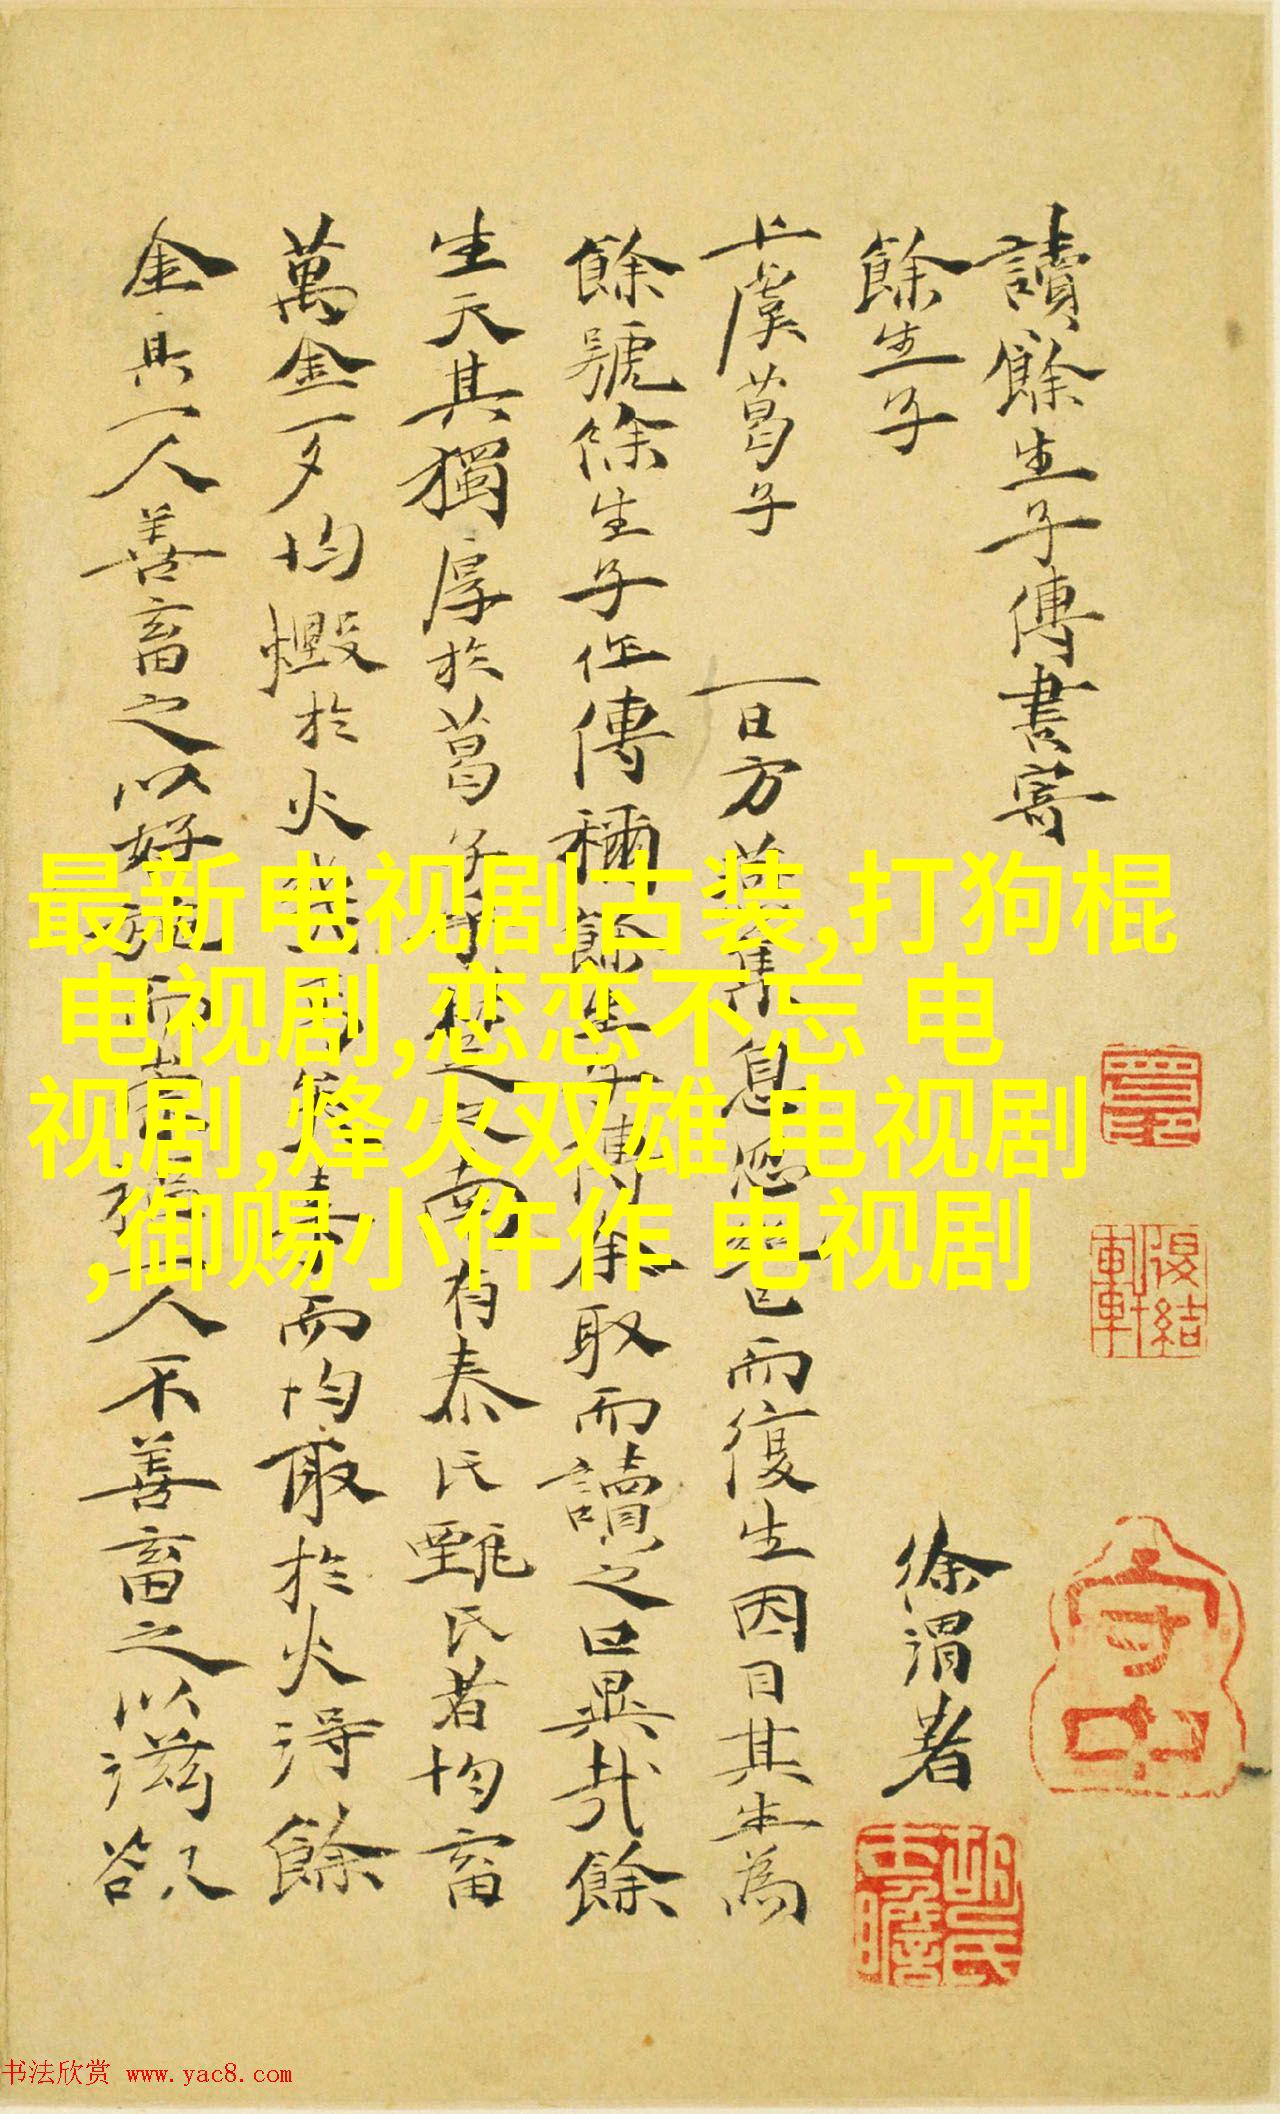 讀餘生子傳書寄
餘生子
徐渭著
上虞葛子 一日方燕集息忽
已而復生因目其生為
餘號餘生子任傳稱餘生子傳余取而讀之曰異哉餘
生天其獨厚於葛子乎楚之南有秦氏甄氏者均畜
萬金一夕均燬於火 而均取於火得餘
金其一人善畜之以好 而 人不善畜之以滋欲
最新电视剧古装,打狗棍
电视剧,恋恋不忘 电
视剧,烽火双雄 电视剧
,御赐小仵作 电视剧
守中
书法欣赏 www.yac8.com